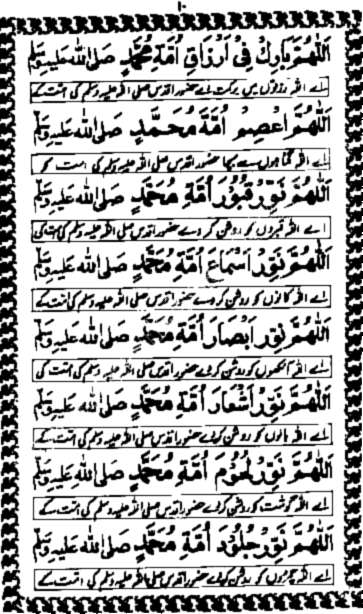 ۱۰
اَللّٰهُمَّ بَارِكْ فِيْ اَرْزَاقِ اُمَّةِ مُحَمَّدٍ صَلَى اللّٰهُ عَلَيْهِ وَسَلَّمَ
اے اللہ رزقوں میں برکت دے حضور اقدس صلی اللہ علیہ وسلم کی امت کے
اَللّٰهُمَّ اعْصِمْ اُمَّةَ مُحَمَّدٍ صَلَى اللّٰهُ عَلَيْهِ وَسَلَّمَ
اے اللہ گناہوں سے بچا حضور اقدس صلی اللہ علیہ وسلم کی امت کو
اَللّٰهُمَّ نَوِّرْ قُبُوْرَ اُمَّةِ مُحَمَّدٍ صَلَى اللّٰهُ عَلَيْهِ وَسَلَّمَ
اے اللہ قبروں کو روشن کر دے حضور اقدس صلی اللہ علیہ وسلم کی امت کی
اَللّٰهُمَّ نَوِّرْ اَسْمَاعَ اُمَّةِ مُحَمَّدٍ صَلَى اللّٰهُ عَلَيْهِ وَسَلَّمَ
اے اللہ کانوں کو روشن کر دے حضور اقدس صلی اللہ علیہ وسلم کی امت کے
اَللّٰهُمَّ نَوِّرْ اَبْصَارَ اُمَّةِ مُحَمَّدٍ صَلَى اللّٰهُ عَلَيْهِ وَسَلَّمَ
اے اللہ آنکھوں کو روشن کر دے حضور اقدس صلی اللہ علیہ وسلم کی امت کی
اَللّٰهُمَّ نَوِّرْ اَشْعَارَ اُمَّةِ مُحَمَّدٍ صَلَى اللّٰهُ عَلَيْهِ وَسَلَّمَ
اے اللہ بالوں کو روشن کر دے حضور اقدس صلی اللہ علیہ وسلم کی امت کے
اَللّٰهُمَّ نَوِّرْ لُحُوْمَ اُمَّةِ مُحَمَّدٍ صَلَى اللّٰهُ عَلَيْهِ وَسَلَّمَ
اے اللہ گوشت کو روشن کر دے حضور اقدس صلی اللہ علیہ وسلم کی امت کے
اَللّٰهُمَّ نَوِّرْ جُلُوْدَ اُمَّةِ مُحَمَّدٍ صَلَى اللّٰهُ عَلَيْهِ وَسَلَّمَ
اے اللہ چمڑوں کو روشن کر دے حضور اقدس صلی اللہ علیہ وسلم کی امت کے